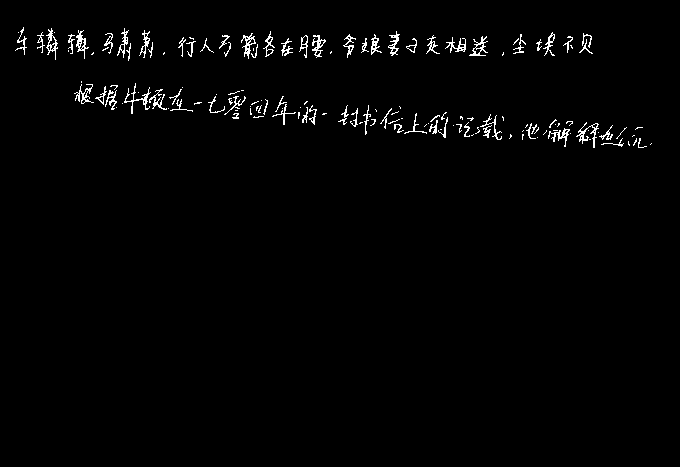 车辚辚,马萧萧,行人弓箭各在腰.爷娘妻子走相送,尘埃不见
根据牛顿在一七零四年的一封书信上的记载,他解释